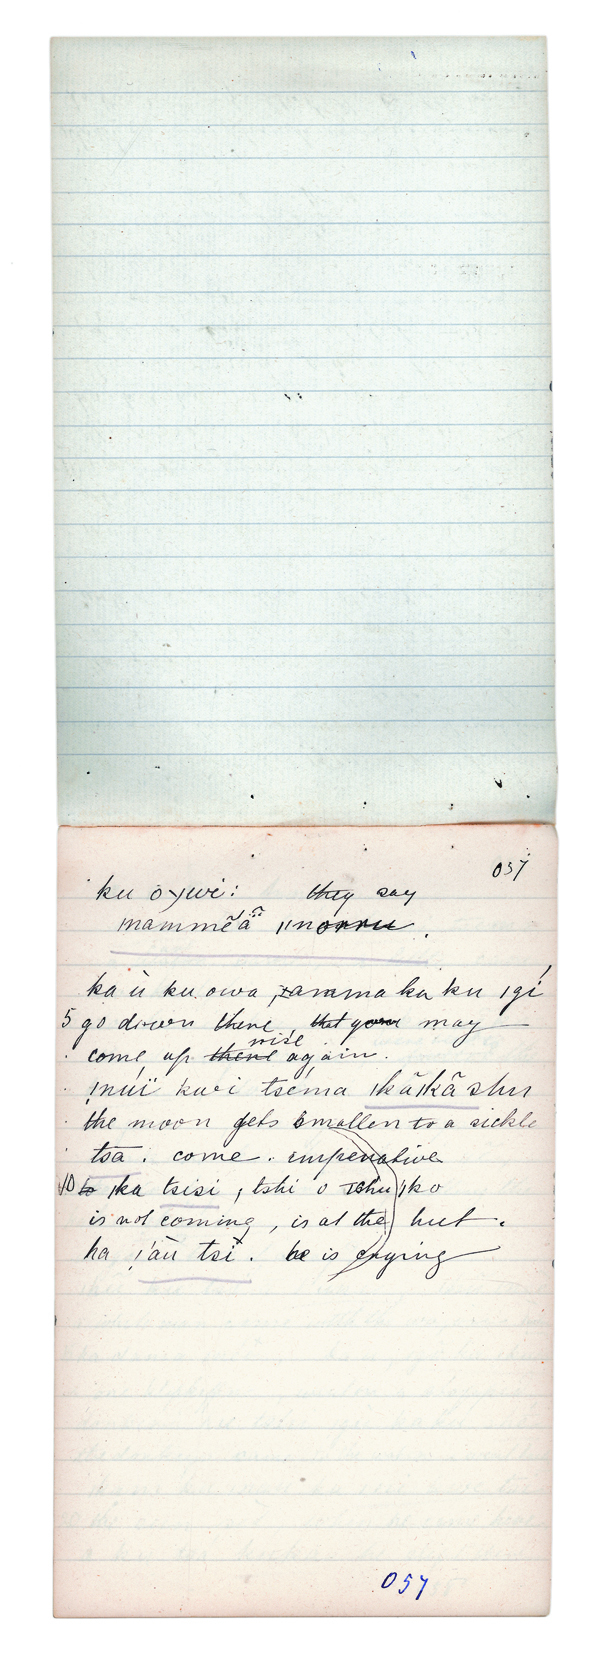 037
ku oywi: they say
mammẽã
ka ù ku owa, ramma ka ku ıgí
5 go down there, that your may
rise
come up there again.
ǃnúï kwi tséma ǀkãǀkã shu
the moon gets smaller to a sickle
tsa. come. imperative
10 to ǀka tsisi, tshi o ǀko
is not coming, is at the hut.
ha tsí. he is crying
057